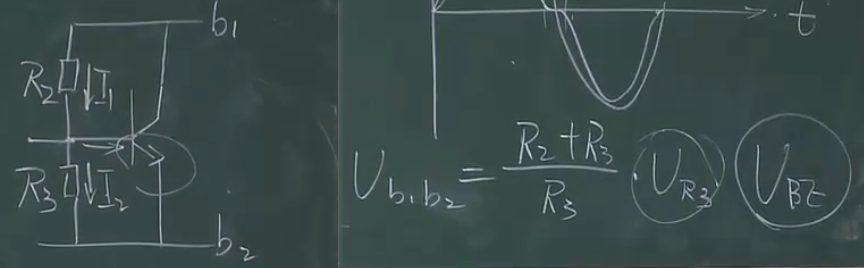 b₁
R₂ I₁
R₃ I₂
b₂
t
U_{b₁b₂} = \frac{R₂+R₃}{R₃} · U_{R₃} U_{BE}